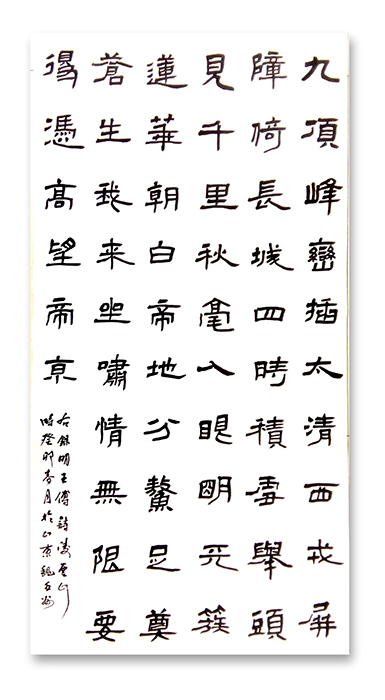 九頂峰巒插太清西戎屏
障倚長城四時積雪舉頭
見千里秋毫入眼明元簇
蓮華朝白帝地分鰲足奠
蒼生我来坐嘯情無限要
得憑高望帝京
右錄明王傅詩凌雲山
時癸卯春月於